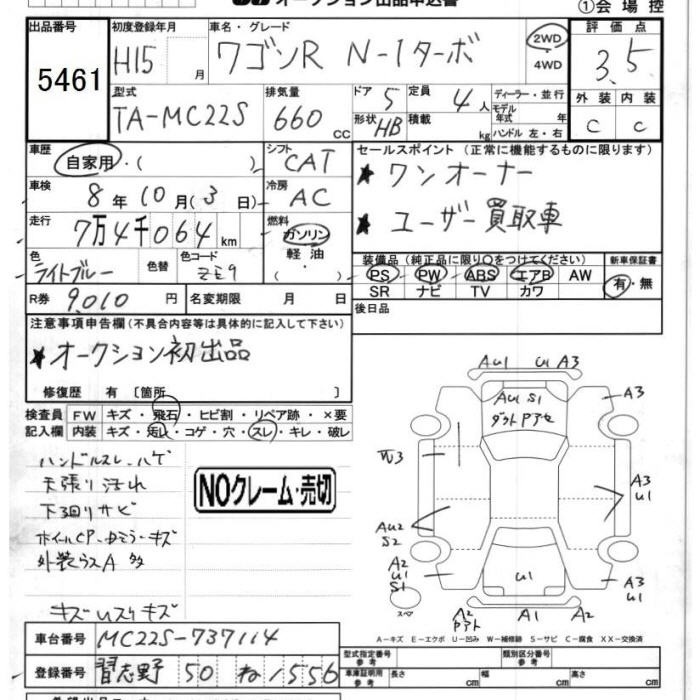 オークション出品申込書
①会場控
出品番号 初度登録年月 車名・グレード 評価点
5461 H15 月 ワゴンR N-1ターボ 2WD ・4WD 3.5
型式 排気量 ドア 5 定員 4人 ディーラー・並行 外装 内装
TA-MC22S 660 cc 形状 HB 積載 kg モデル年式 年 ハンドル 左・右 C C
車歴 自家用・( ) シフト CAT セールスポイント(正常に機能するものに限ります)
車検 8年10月(3日) 冷房 AC ★ワンオーナー
走行 7万4千064km 燃料 ガソリン 軽油・( ) ★ユーザー買取車
色 ライトブルー 色替 色コード ZE9 装備品(純正品に限り○をつけてください) 新車保証書
PS PW ABS エアB AW 有・無
SR ナビ TV カワ
R券 9,010円 名変期限 月 日 後日品
注意事項申告欄(不具合内容等は具体的に記入して下さい)
★オークション初出品
修復歴 有〔箇所 〕
検査員記入欄 FW キズ・飛石・ヒビ割・リペア跡・×要
内装 キズ・汚レ・コゲ・穴・スレ・キレ・破レ
ハンドルスレ、ハゲ
天張り汚れ
下回りサビ
外装ウスA多
NOクレーム・売切
AU1 U1 A3
AU1 S1
A3
W3
A3 U1
AU2 S2
A2 U1 S1
U1
A3 U1
スペア
A2 A1 A2
A-キズ E-エクボ U-凹み W-補修跡 S-サビ C-腐食 XX-交換済
車台番号 MC22S-737114
登録番号 習志野 50 ね 1556
型式指定番号 参考 類別区分番号 参考
車庫証明用 参考 長さ cm 幅 cm 高さ cm